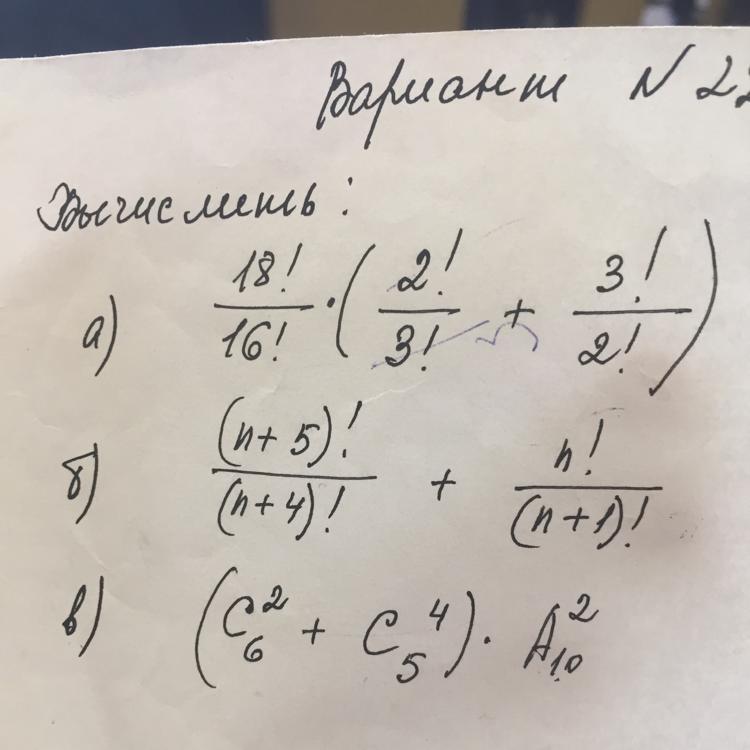 Вариант N 22
Вычислить:
а) 18!/16! · (2!/3! + 3!/2!)
б) (n+5)!/(n+4)! + n!/(n+1)!
в) (C₆² + C₅⁴) · A₁₀²